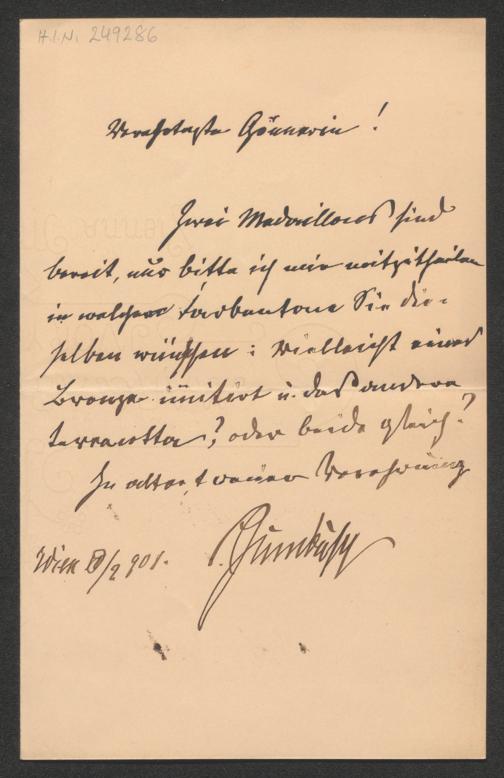 H.I.N. 249286
Verehrteste Gönnerin!
Zwei Medaillons sind
bereit, nur bitte ich mir mitzutheilen
in welchem Farbentone Sie die-
selben wünschen: vielleicht eines
Bronze imitirt u. das andere
terracotta, oder beide gleich?
In alter, treuer Verehrung
Wien /2 901.